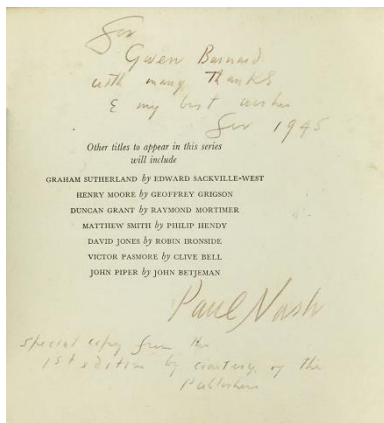 for
Gwen Barnard
with many thanks
& my best wishes
for 1945
Other titles to appear in this series
will include
GRAHAM SUTHERLAND by EDWARD SACKVILLE-WEST
HENRY MOORE by GEOFFREY GRIGSON
DUNCAN GRANT by RAYMOND MORTIMER
MATTHEW SMITH by PHILIP HENDY
DAVID JONES by ROBIN IRONSIDE
VICTOR PASMORE by CLIVE BELL
JOHN PIPER by JOHN BETJEMAN
Paul Nash
special copy from the
1st edition by courtesy of the
Publishers